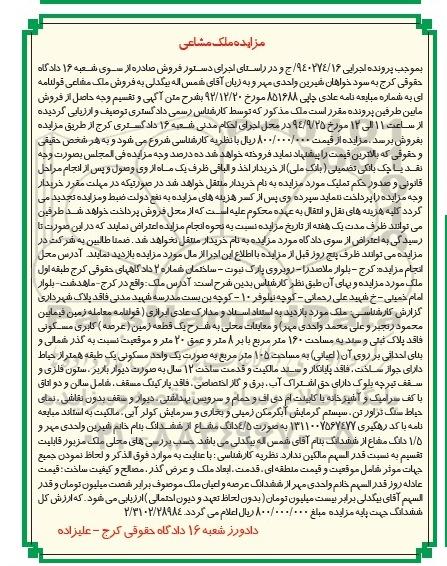 مزایده ملک مشاعی
بموجب پرونده اجرایی ۹۴۰۲۷۴/۱۶/ج و در راستای اجرای دستور فروش صادره از سوی شعبه ۱۶ دادگاه
حقوقی کرج به سود خواهان شیرین واحدی مهر و به زیان آقای شمس اله بیگدلی به فروش ملک مشاعی قولنامه
ای به شماره مبایعه نامه عادی چاپی ۸۵۱۶۸۸ مورخ ۹۲/۱۲/۲۰ بشرح متن آگهی و تقسیم وجه حاصل از فروش
مابین طرفین پرونده مقرر است ملک مذکور که توسط کارشناس رسمی دادگستری توصیف و ارزیابی گردیده
از ساعت ۱۱ الی ۱۲ مورخ ۹۴/۹/۲۵ در محل اجرای احکام مدنی شعبه ۱۶ دادگستری کرج از طریق مزایده
بفروش برسد. مزایده از قیمت ۸۰۰/۰۰۰/۰۰۰ ریال با نظریه کارشناسی شروع می شود و به هر شخص حقیقی
و حقوقی که بالاترین قیمت را پیشنهاد نماید فروخته خواهد شد ده درصد وجه مزایده فی المجلس بصورت وجه
نقد یا چک بانکی تضمینی (بانک ملی) از خریدار اخذ و الباقی ظرف یک ماه از وی وصول و پس از انجام مراحل
قانونی و صدور حکم تملیک مورد مزایده به نام خریدار منتقل خواهد شد در صورتیکه در مهلت مقرر خریدار
وجه مزایده را پرداخت ننماید سپرده وی پس از کسر هزینه های مزایده به نفع دولت ضبط و مزایده تجدید می
گردد کلیه هزینه های نقل و انتقال به عهده محکوم علیه است که از محل فروش پرداخت خواهد شد. طرفین
می توانند ظرف مدت یک هفته از تاریخ مزایده نسبت به نحوه انجام مزایده اعتراض نمایند که در این صورت تا
رسیدگی به اعتراض از سوی دادگاه مورد مزایده به نام خریدار منتقل نخواهد شد. ضمنا طالبین به شرکت در
مزایده می توانند ظرف پنج روز قبل از مزایده با اطلاع این اجرا از مال مورد مزایده بازدید نمایند. آدرس محل
انجام مزایده: کرج - بلوار ملاصدرا - روبروی پارک نبوت - ساختمان شماره ۲ دادگاههای حقوقی کرج طبقه اول
ملک مورد مزایده و بهای آن طبق نظر کارشناس بدین شرح است: آدرس ملک: واقع در کرج - ماهدشت - بلوار
امام خمینی - خ شهید علی رحمانی - کوچه نیلوفر ۱۰ - کوچه بن بست مدرسه شهید مدنی فاقد پلاک شهرداری
گزارش کارشناسی: ملک مورد بازدید به استناد اسناد و مدارک عادی ابرازی (قولنامه معامله زمین فیمابین
محمود رنجبر و علی محمد واحدی مهر) و معاینات محلی به شرح یک قطعه زمین (عرصه) کاربری مسکونی
فاقد پلاک ثبتی و سند به مساحت ۱۶۰ متر مربع با بر ۸ متر و عمق ۲۰ متر و موقعیت نسبت به گذر شمالی و
بنای احداثی بر روی آن (اعیانی) به مساحت ۱۰۵ متر مربع به صورت یک واحد مسکونی یک طبقه همتراز حیاط
دارای جواز ساخت، فاقد پایانکار و سند مالکیت و قدمت ساخت ۱۲ سال به صورت دیوار باربر، ستون فلزی و
سقف تیرچه بلوک دارای حق اشتراک آب، برق و گاز اختصاصی، فاقد پارکینگ مسقف، شامل سالن و دو اتاق
با کف سرامیک و آشپزخانه با کابینت ام دی اف و حمام و سرویس بهداشتی، دیوار و سقف بدون نقاشی، نمای
حیاط سنگ تراورتن، سیستم گرمایش آبگرمکن زمینی و بخاری و سرمایش کولر آبی. مالکیت به استناد مبایعه
نامه با کد رهگیری ۱۳۱۱۰۰۷۵۶۷۴۷۷ به صورت ۴/۵ دانگ مشاع از ششدانگ بنام خانم شیرین واحدی مهر و
۱/۵ دانگ مشاع از ششدانگ بنام آقای شمس اله بیگدلی می باشد. حسب بررسی های محلی ملک مزبور قابلیت
تقسیم به نسبت قدر السهم مالکین ندارد. نظریه کارشناسی: با عنایت به موارد فوق الذکر و لحاظ نمودن جمیع
جهات موثر شامل موقعیت و قیمت منطقه ای، قدمت، ابعاد ملک و عرض گذر، مصالح و کیفیت ساخت؛ قیمت
عادله روز قدر السهم خانم واحدی مهر از ششدانگ عرصه و اعیان ملک موصوف برابر شصت میلیون تومان و قدر
السهم آقای بیگدلی برابر بیست میلیون تومان (بدون لحاظ تعهد و دیون احتمالی) ارزیابی می شود. که ارزش کل
ششدانگ جهت پایه مزایده مبلغ ۸۰۰/۰۰۰/۰۰۰ ریال اعلام می گردد. ۲/۳۱۰۲/۲۸۹۸۴
دادورز شعبه ۱۶ دادگاه حقوقی کرج - علیزاده